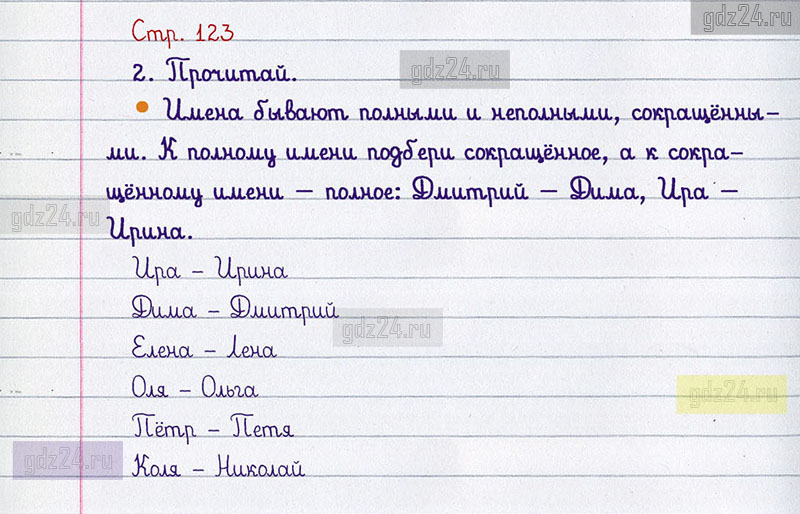 gdz24.ru
Стр. 123
2. Прочитай.
gdz24.ru
Имена бывают полными и неполными, сокращённы-
ми. К полному имени подбери сокращённое, а к сокра-
щённому имени – полное: Дмитрий – Дима, Ира –
gdz24.ru
Ирина.
Ира – Ирина
Дима – Дмитрий
gdz24.ru
Елена – Лена
Оля – Ольга
gdz24.ru
Пётр – Петя
Коля – Николай
gdz24.ru